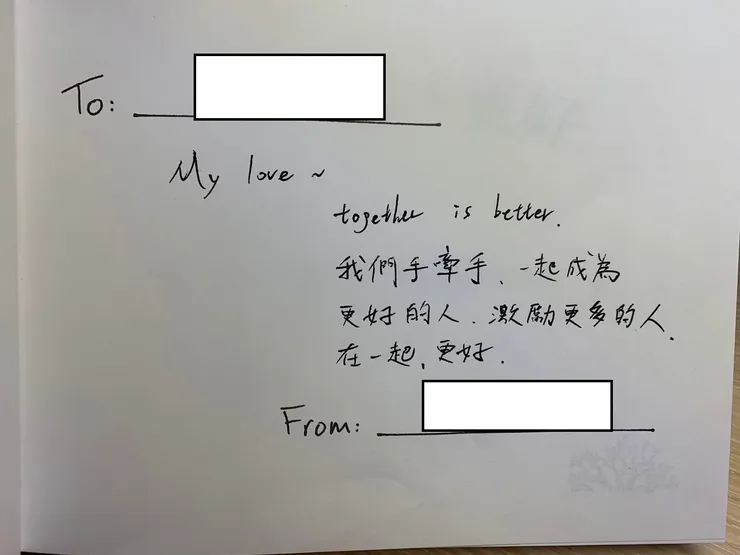 To:
My love ~
together is better.
我們手牽手、一起成為
更好的人、激勵更多的人、
在一起、更好.
From: